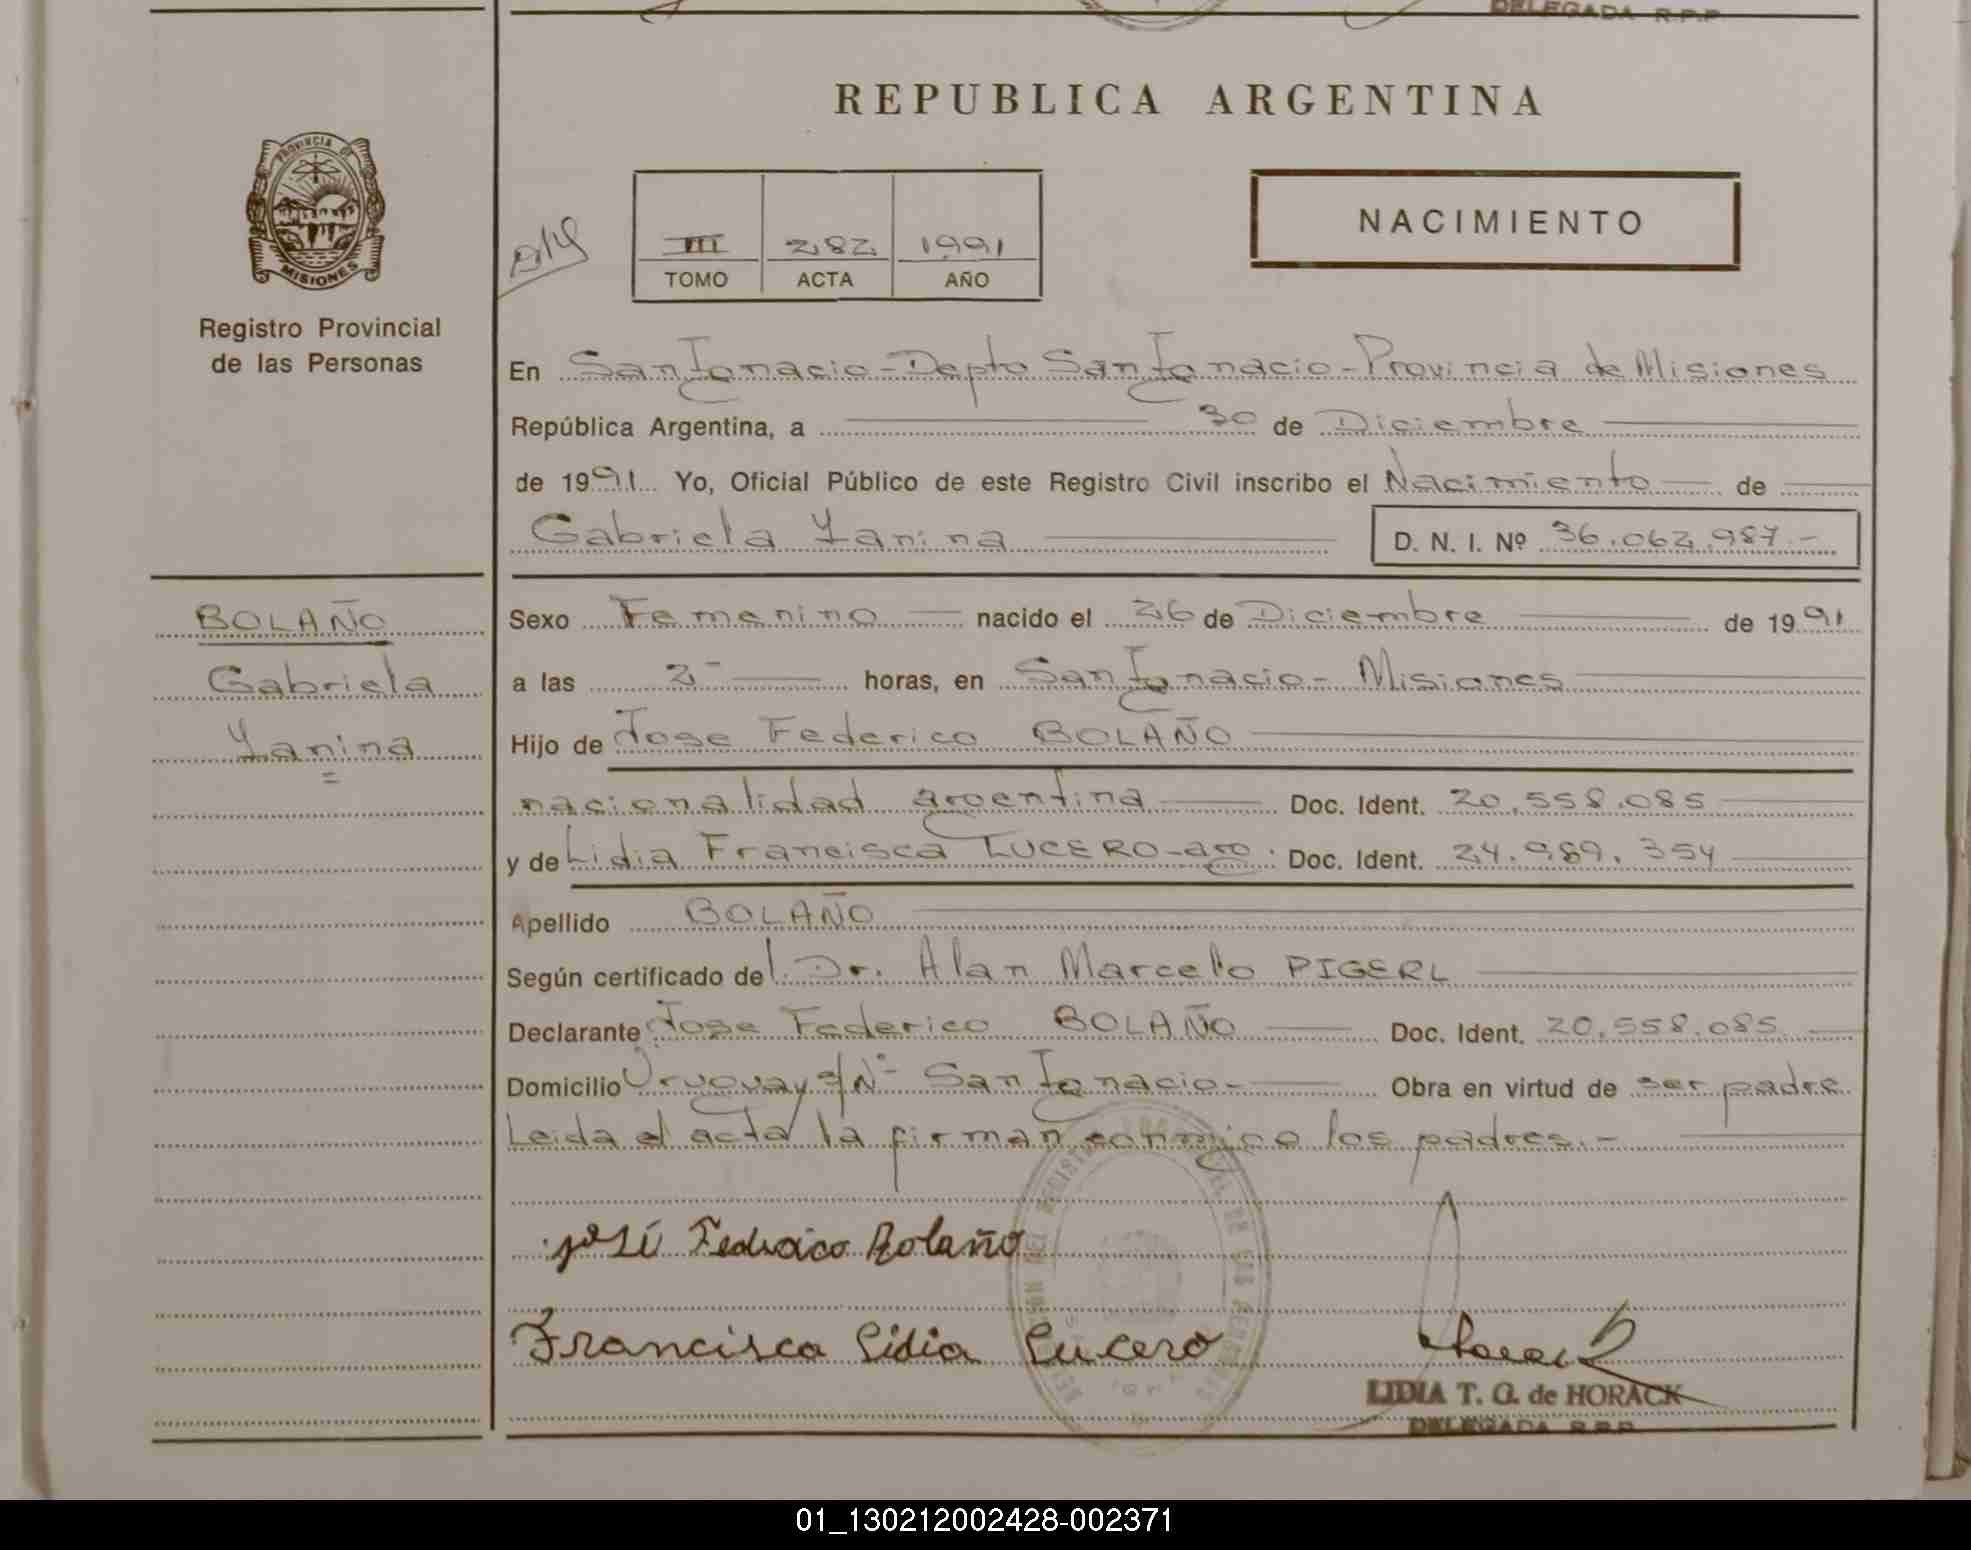 DELEGADA R.P.P.
REPUBLICA ARGENTINA
PROVINCIA DE
MISIONES
Registro Provincial
de las Personas
III 282 1991
TOMO ACTA AÑO
NACIMIENTO
En San Ignacio - Depto San Ignacio - Provincia de Misiones
República Argentina, a 30 de Diciembre
de 1991 Yo, Oficial Público de este Registro Civil inscribo el Nacimiento de
Gabriela Yanina D. N. I. Nº 36.062.987.-
BOLAÑO
Gabriela
Yanina
Sexo Femenino nacido el 26 de Diciembre de 1991
a las 2- horas, en San Ignacio - Misiones
Hijo de Jose Federico BOLAÑO
nacionalidad argentina Doc. Ident. 20.558.085
y de Lidia Francisca LUCERO-arg. Doc. Ident. 24.989.354
Apellido BOLAÑO
Según certificado del Dr. Alan Marcelo PIGERL
Declarante Jose Federico BOLAÑO Doc. Ident. 20.558.085
Domicilio Uruguay s/Nº San Ignacio- Obra en virtud de ser padre
Leida el acta la firman conmigo los padres.-
José Federico Bolaño
Francisca Lidia Lucero
Horack
LIDIA T. G. de HORACK
DELEGADA R.P.P.
01_130212002428-002371